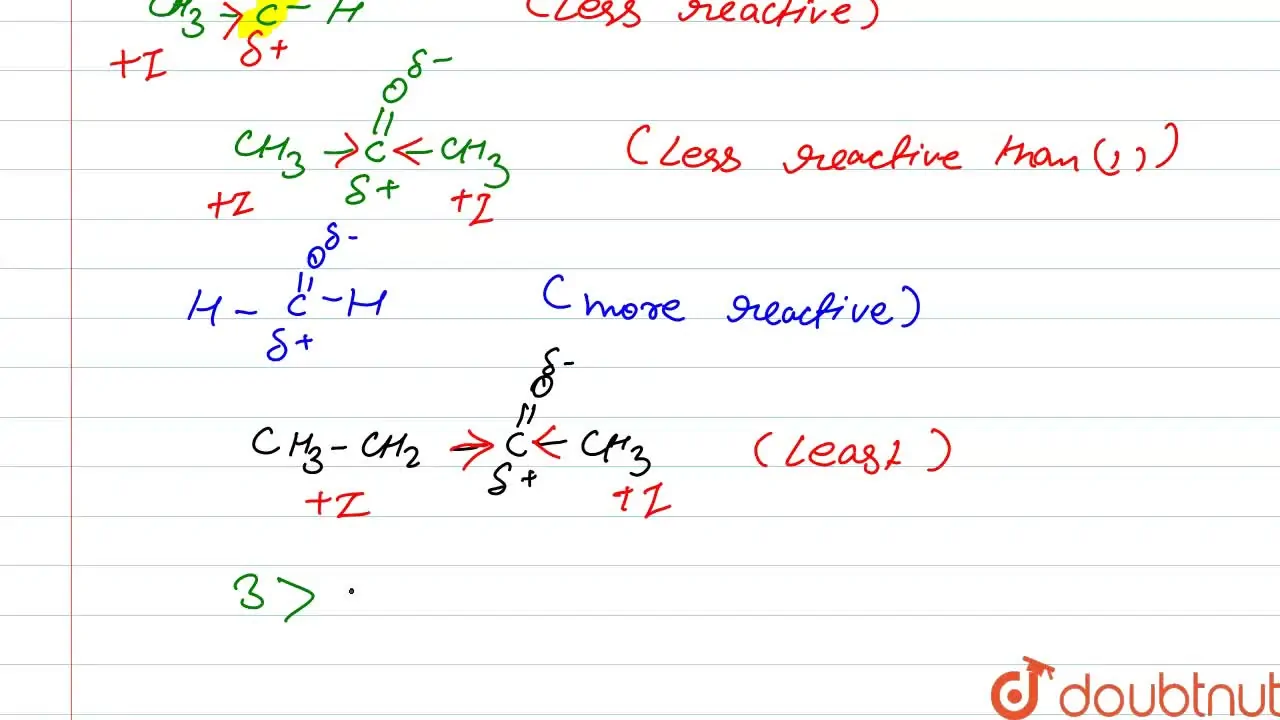 CH3 → C – H (Less reactive)
+I δ+
δ-
O
||
CH3 → C ← CH3 (Less reactive than (,,)
+I δ+ +I
δ-
O
||
H – C – H (more reactive)
δ+
δ-
O
||
CH3 – CH2 → C ← CH3 (Least)
+I δ+ +I
3 > .
doubtnut